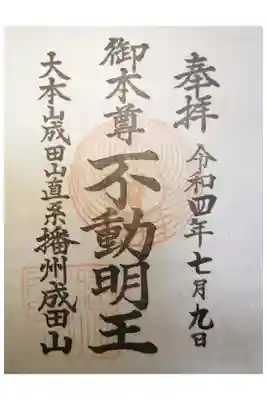 奉拝 令和四年七月九日
御本尊 不動明王
大本山成田山直系播州成田山